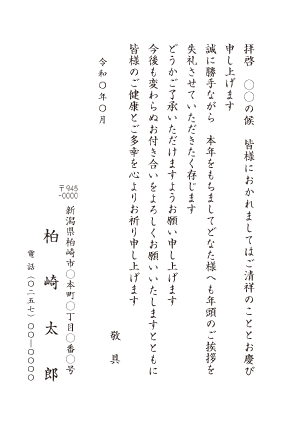 拝啓　〇〇の候　皆様におかれましてはご清祥のこととお慶び
申し上げます
誠に勝手ながら　本年をもちましてどなた様へも年頭のご挨拶を
失礼させていただきたく存じます
どうかご了承いただけますようお願い申し上げます
今後も変わらぬお付き合いをよろしくお願いいたしますとともに
皆様のご健康とご多幸を心よりお祈り申し上げます
敬具
令和〇年〇月
〒945
-0000
新潟県柏崎市〇本町〇丁目〇番〇号
柏崎太郎
電話（〇二五七）〇〇―〇〇〇〇